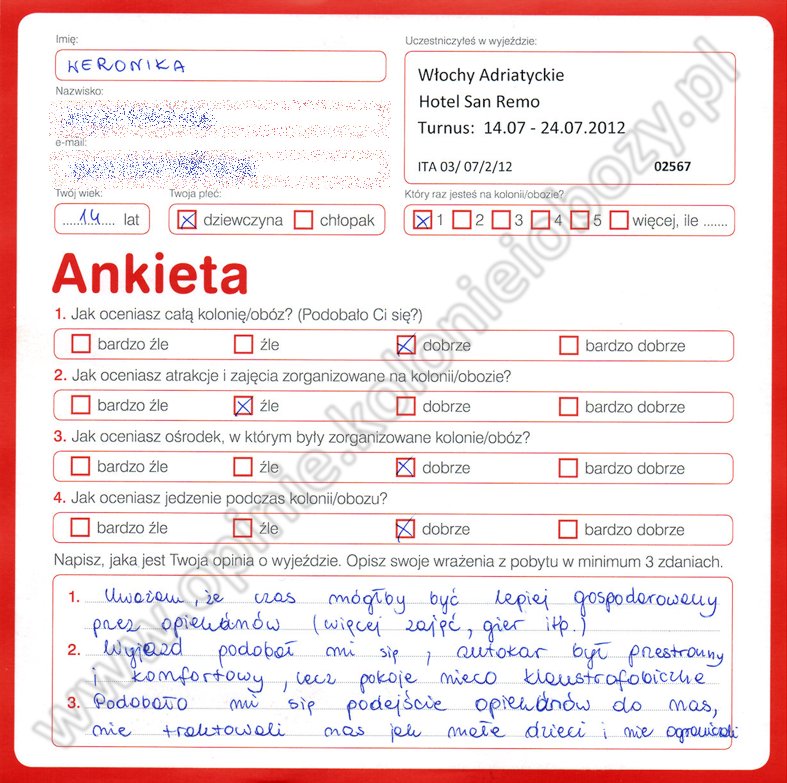 Imię:
WERONIKA
Uczestniczyłeś w wyjeździe:
Włochy Adriatyckie
Hotel San Remo
Turnus: 14.07 - 24.07.2012
ITA 03/ 07/2/12 02567
Nazwisko:
e-mail:
Twój wiek:
14 lat
Twoja płeć:
dziewczyna chłopak
Który raz jesteś na kolonii/obozie?
1 2 3 4 5 więcej, ile .......
Ankieta
1. Jak oceniasz całą kolonię/obóz? (Podobało Ci się?)
bardzo źle źle dobrze bardzo dobrze
2. Jak oceniasz atrakcje i zajęcia zorganizowane na kolonii/obozie?
bardzo źle źle dobrze bardzo dobrze
3. Jak oceniasz ośrodek, w którym były zorganizowane kolonie/obóz?
bardzo źle źle dobrze bardzo dobrze
4. Jak oceniasz jedzenie podczas kolonii/obozu?
bardzo źle źle dobrze bardzo dobrze
Napisz, jaka jest Twoja opinia o wyjeździe. Opisz swoje wrażenia z pobytu w minimum 3 zdaniach.
1. Uważam, że czas mógłby być lepiej gospodarowany
przez opiekunów (więcej zajęć, gier itp.)
2. Wyjazd podobał mi się, autokar był przestronny
i komfortowy, lecz pokoje nieco klaustrofobiczne
3. Podobało mi się podejście opiekunów do nas,
nie traktowali nas jak małe dzieci i nie ograniczali
www.opinie.kolonieiobozy.pl